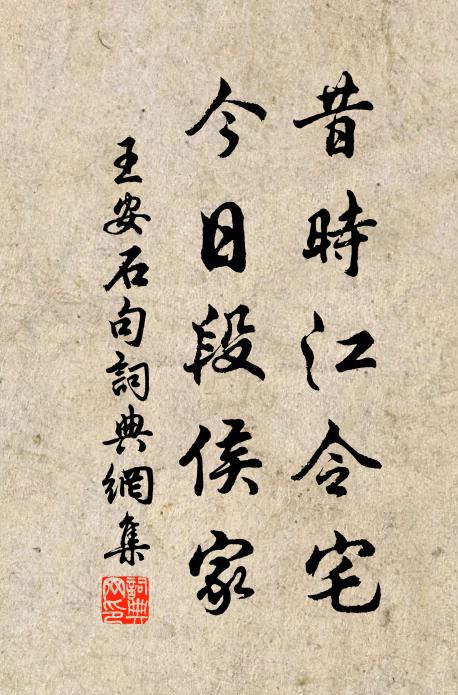 昔時江令宅
今日段侯家
王安石句詞典網集
詞典網印